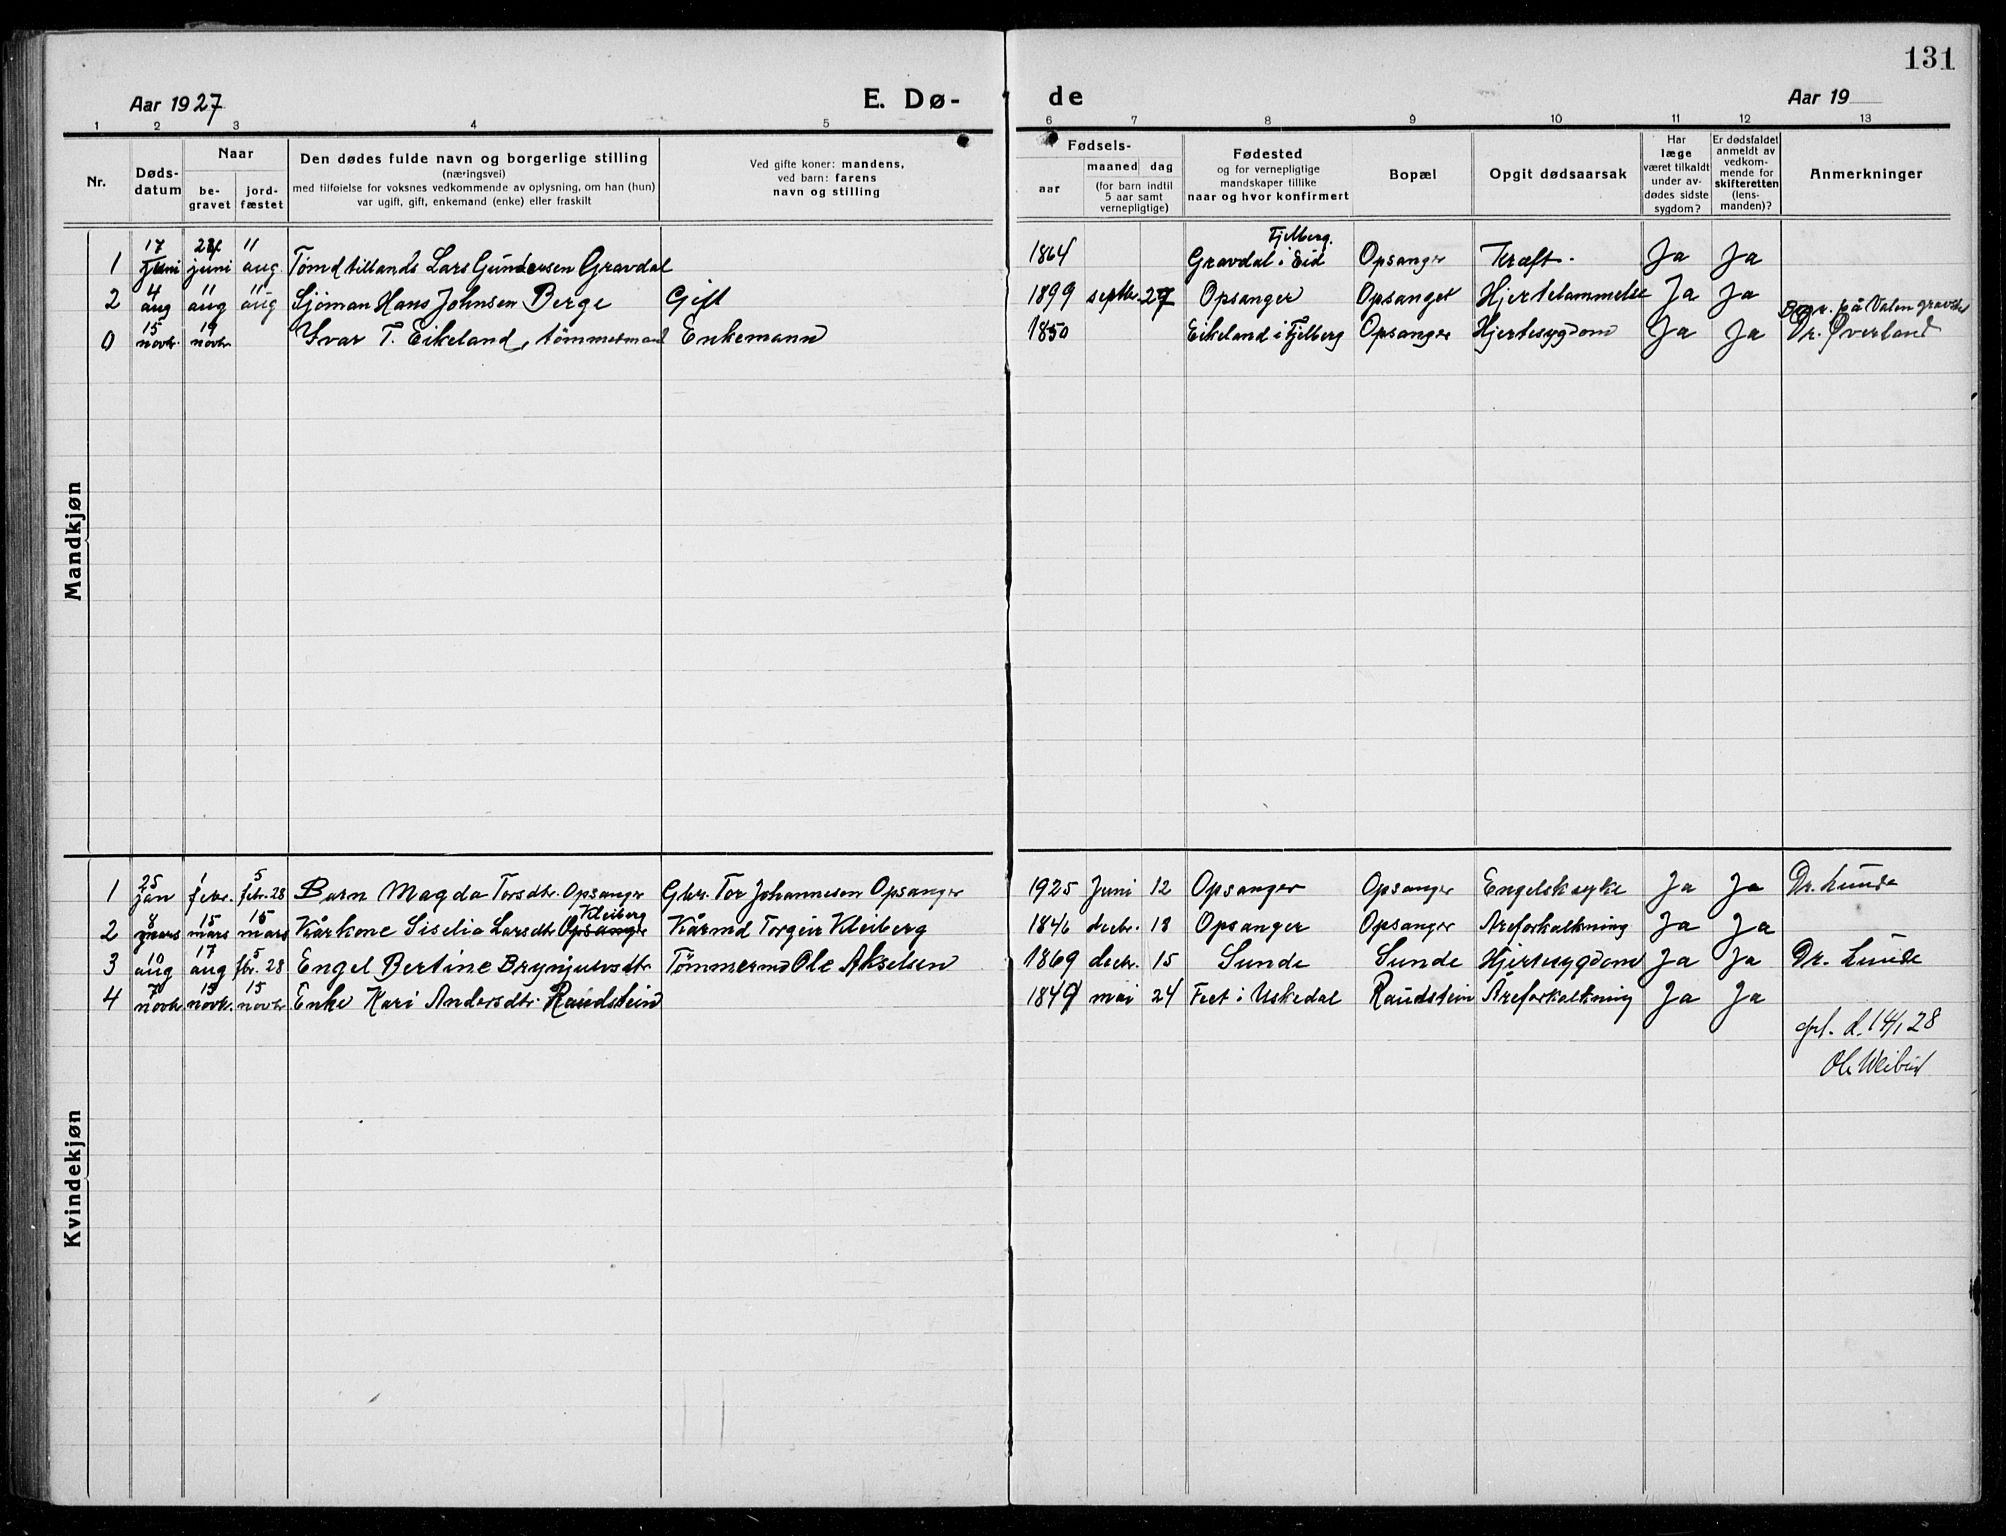 131
Aar 1927 E. Dø- de Aar 19
1 2 3 4 5 6 7 8 9 10 11 12 13
Nr.
Døds-
datum
Naar
be-
gravet
jord-
fæstet
Den dødes fulde navn og borgerlige stilling
(næringsvei)
med tilføielse for voksnes vedkommende av oplysning, om han (hun)
var ugift, gift, enkemand (enke) eller fraskilt
Ved gifte koner: mandens,
ved barn: farens
navn og stilling
Fødsels-
aar
maaned dag
(for barn indtil
5 aar samt
vernepligtige)
Fødested
og for vernepligtige
mandskaper tillike
naar og hvor konfirmert
Bopæl
Opgit dødsaarsak
Har
læge
været tilkaldt
under av-
dødes sidste
sygdom?
Er dødsfaldet
anmeldt av
vedkom-
mende for
skifteretten
(lens-
manden)?
Anmerkninger
Mandkjøn
1 17 juni juni 11 aug. Lars Gundersen Gravdal 1864 Gravdal i Eid Fjelberg. Opsanger Kræft. Ja Ja
2 4 aug 11 aug 11 aug Sjöman Hans Johnsen Berge Gift 1899 septbr. 27 Opsanger Opsanger Hjertelammelse Ja Ja Begr. på Valen gravsted
0 15 novbr. 19 novbr Ivar T. Eikeland, tömmermand Enkemann 1850 Eikeland i Fjelberg Opsanger Hjertesygdom Ja Ja Dr. Øverland
Kvindekjøn
1 25 jan 1 febr. 5 febr. 28 Barn Magda Torsdtr. Opsanger Gbr. Tor Johannesen Opsanger 1925 Juni 12 Opsanger Opsanger Engelsksyke Ja Ja Dr. Lunde
2 8 mars 15 mars 15 mars Kårkone Siselia Larsdtr. Opsanger Kleiberg Kårmd Torgeir Kleiberg 1846 decbr. 18 Opsanger Opsanger Åreforkalkning Ja Ja
3 10 aug 17 aug 5 fbr. 28 Engel Bertine Brynjulvsdtr. Tömmermd Ole Akselsen 1869 decbr. 15 Sunde Sunde Hjertesygdom Ja Ja Dr. Lunde
4 7 novbr. 15 novbr. 15 novbr Enke Kari Andersdtr. Raudstein 1849 mai 24 Feet i Uskedal Raudstein Åreforkalkning Ja Ja
d. 14/1 28